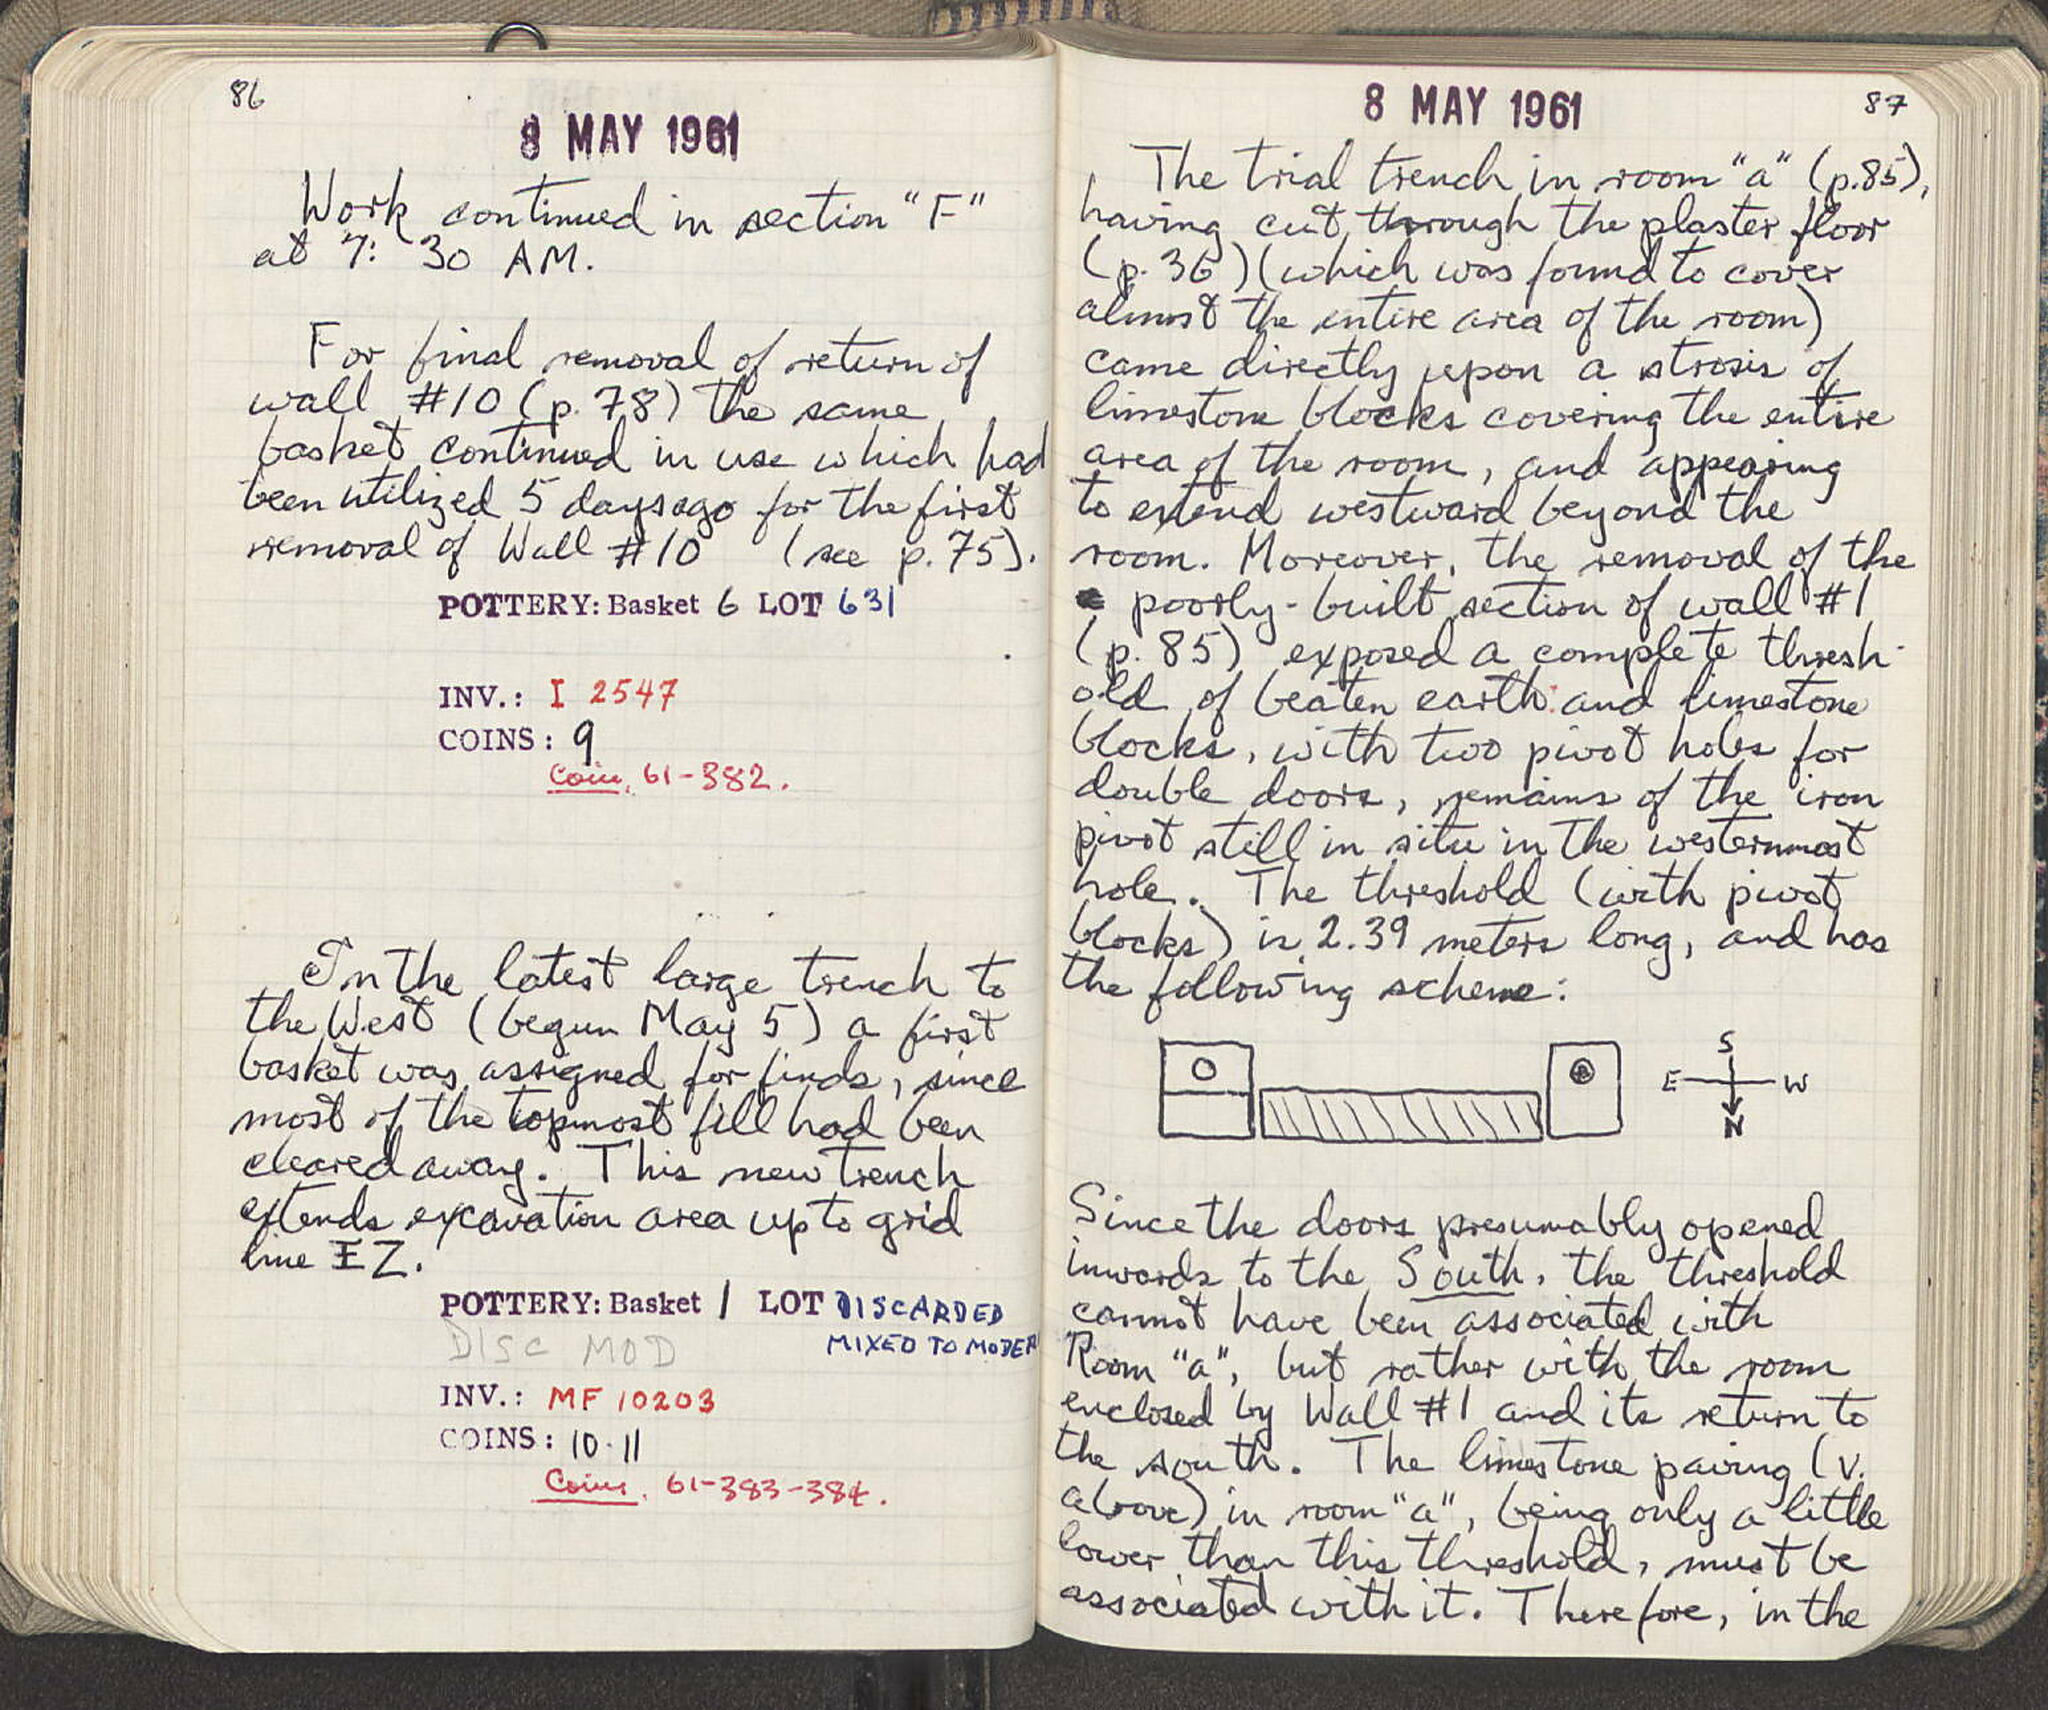 86
8 MAY 1961
Work continued in section "F"
at 7:30 AM.
For final removal of return of
wall #10 (p. 78) the same
basket continued in use which had
been utilized 5 days ago for the first
removal of Wall #10 (see p. 75).
POTTERY: Basket 6 LOT 631
INV.: I 2547
COINS: 9
Coin, 61-382.
In the latest large trench to
the West (begun May 5) a first
basket was assigned for finds, since
most of the topmost fill had been
cleared away. This new trench
extends excavation area up to grid
line IZ.
POTTERY: Basket 1 LOT DISCARDED
DISC MOD MIXED TO MODERN
INV.: MF 10203
COINS: 10-11
Coins. 61-383-384.
87
8 MAY 1961
The trial trench in room "a" (p.85),
having cut through the plaster floor
(p. 36) (which was found to cover
almost the entire area of the room)
came directly upon a strosis of
limestone blocks covering the entire
area of the room, and appearing
to extend westward beyond the
room. Moreover, the removal of the
poorly-built section of wall #1
(p. 85) exposed a complete thresh-
old of beaten earth and limestone
blocks, with two pivot holes for
double doors, remains of the iron
pivot still in situ in the westernmost
hole. The threshold (with pivot
blocks) is 2.39 meters long, and has
the following scheme:
S
E W
N
Since the doors presumably opened
inwards to the South, the threshold
cannot have been associated with
Room "a", but rather with the room
enclosed by Wall #1 and its return to
the south. The limestone paving (v.
above) in room "a", being only a little
lower than this threshold, must be
associated with it. Therefore, in the